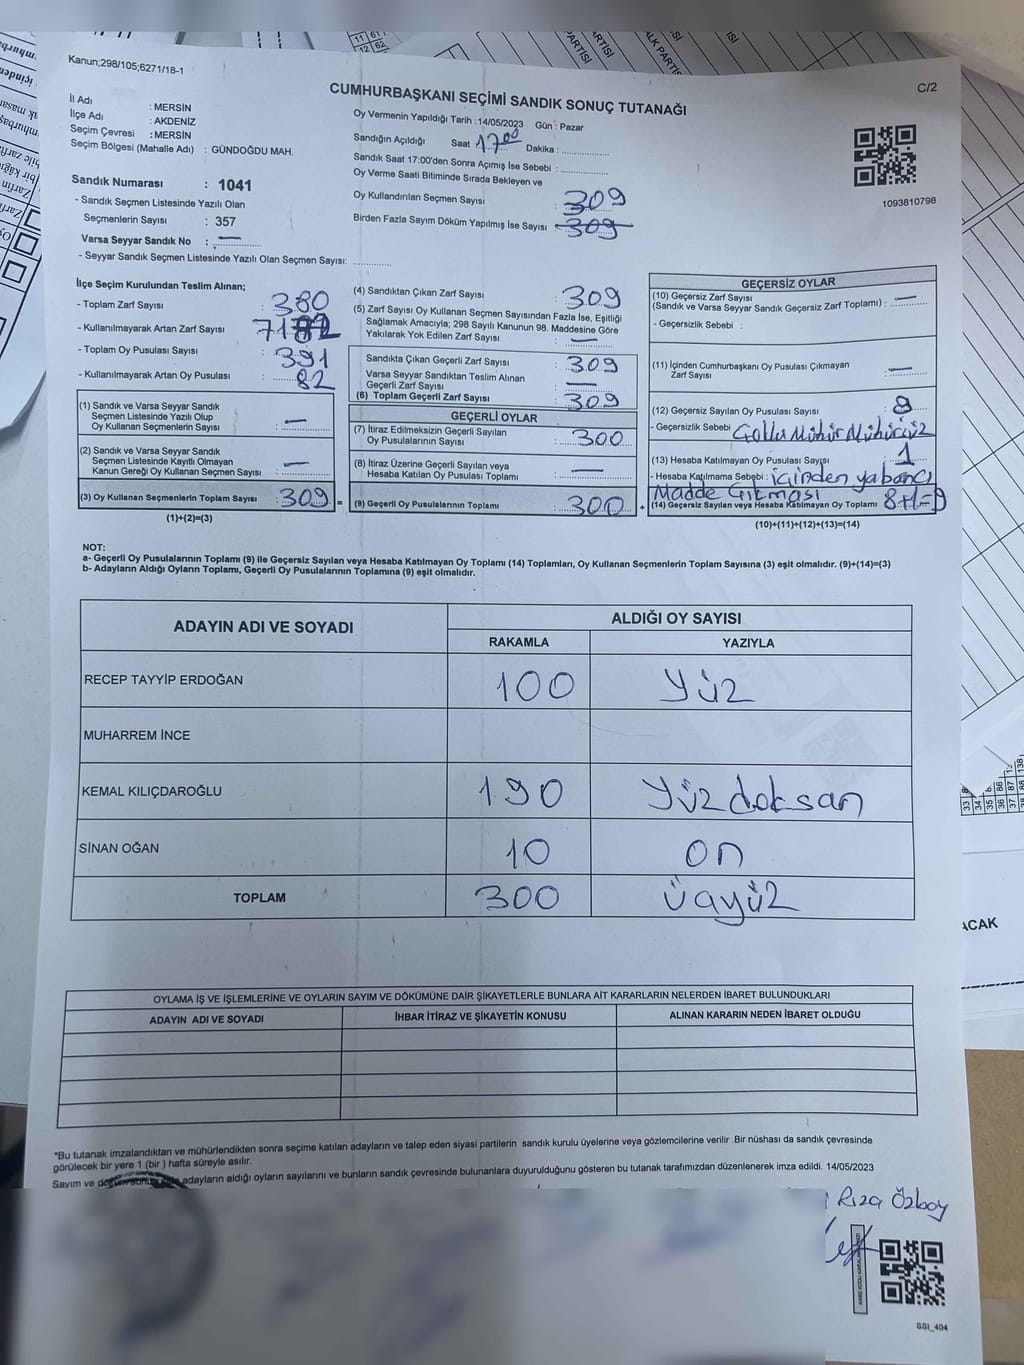 Kanun;298/105;6271/18-1
C/2
CUMHURBAŞKANI SEÇİMİ SANDIK SONUÇ TUTANAĞI
İl Adı : MERSİN
İlçe Adı : AKDENİZ
Seçim Çevresi : MERSİN
Seçim Bölgesi (Mahalle Adı) : GÜNDOĞDU MAH.
Sandık Numarası : 1041
- Sandık Seçmen Listesinde Yazılı Olan
Seçmenlerin Sayısı : 357
Varsa Seyyar Sandık No : —
- Seyyar Sandık Seçmen Listesinde Yazılı Olan Seçmen Sayısı:
Oy Vermenin Yapıldığı Tarih :14/05/2023 Gün : Pazar
Sandığın Açıldığı Saat 17 00 Dakika :
Sandık Saat 17:00'den Sonra Açımış İse Sebebi :
Oy Verme Saati Bitiminde Sırada Bekleyen ve
Oy Kullandırılan Seçmen Sayısı : 309
Birden Fazla Sayım Döküm Yapılmış İse Sayısı : 309
1093810798
İlçe Seçim Kurulundan Teslim Alınan;
- Toplam Zarf Sayısı : 380
- Kullanılmayarak Artan Zarf Sayısı : 71
- Toplam Oy Pusulası Sayısı : 391
- Kullanılmayarak Artan Oy Pusulası : 82
(1) Sandık ve Varsa Seyyar Sandık
Seçmen Listesinde Yazılı Olup
Oy Kullanan Seçmenlerin Sayısı : —
(2) Sandık ve Varsa Seyyar Sandık
Seçmen Listesinde Kayıtlı Olmayan
Kanun Gereği Oy Kullanan Seçmen Sayısı : —
(3) Oy Kullanan Seçmenlerin Toplam Sayısı : 309 =
(1)+(2)=(3)
(4) Sandıktan Çıkan Zarf Sayısı : 309
(5) Zarf Sayısı Oy Kullanan Seçmen Sayısından Fazla İse, Eşitliği
Sağlamak Amacıyla; 298 Sayılı Kanunun 98. Maddesine Göre
Yakılarak Yok Edilen Zarf Sayısı : —
Sandıkta Çıkan Geçerli Zarf Sayısı : 309
Varsa Seyyar Sandıktan Teslim Alınan
Geçerli Zarf Sayısı : —
(6) Toplam Geçerli Zarf Sayısı : 309
GEÇERLİ OYLAR
(7) İtiraz Edilmeksizin Geçerli Sayılan
Oy Pusulalarının Sayısı : 300
(8) İtiraz Üzerine Geçerli Sayılan veya
Hesaba Katılan Oy Pusulası Toplamı : —
(9) Geçerli Oy Pusulalarının Toplamı : 300 +
GEÇERSİZ OYLAR
(10) Geçersiz Zarf Sayısı
(Sandık ve Varsa Seyyar Sandık Geçersiz Zarf Toplamı) : —
- Geçersizlik Sebebi :
(11) İçinden Cumhurbaşkanı Oy Pusulası Çıkmayan
Zarf Sayısı : —
(12) Geçersiz Sayılan Oy Pusulası Sayısı : 8
- Geçersizlik Sebebi : Çoklu Mühür Mühürsüz
(13) Hesaba Katılmayan Oy Pusulası Sayısı : 1
- Hesaba Katılmama Sebebi : içinden yabancı
Madde Çıkması
(14) Geçersiz Sayılan veya Hesaba Katılmayan Oy Toplamı : 8+1=9
(10)+(11)+(12)+(13)=(14)
NOT:
a- Geçerli Oy Pusulalarının Toplamı (9) ile Geçersiz Sayılan veya Hesaba Katılmayan Oy Toplamı (14) Toplamları, Oy Kullanan Seçmenlerin Toplam Sayısına (3) eşit olmalıdır. (9)+(14)=(3)
b- Adayların Aldığı Oyların Toplamı, Geçerli Oy Pusulalarının Toplamına (9) eşit olmalıdır.
ADAYIN ADI VE SOYADI ALDIĞI OY SAYISI
RAKAMLA YAZIYLA
RECEP TAYYİP ERDOĞAN 100 Yüz
MUHARREM İNCE
KEMAL KILIÇDAROĞLU 190 Yüzdoksan
SİNAN OĞAN 10 on
TOPLAM 300 üçyüz
OYLAMA İŞ VE İŞLEMLERİNE VE OYLARIN SAYIM VE DÖKÜMÜNE DAİR ŞİKAYETLERLE BUNLARA AİT KARARLARIN NELERDEN İBARET BULUNDUKLARI
ADAYIN ADI VE SOYADI İHBAR İTİRAZ VE ŞİKAYETİN KONUSU ALINAN KARARIN NEDEN İBARET OLDUĞU
*Bu tutanak imzalandıktan ve mühürlendikten sonra seçime katılan adayların ve talep eden siyasi partilerin sandık kurulu üyelerine veya gözlemcilerine verilir .Bir nüshası da sandık çevresinde
görülecek bir yere 1 (bir ) hafta süreyle asılır.
Sayım ve döküm adayların aldığı oyların sayılarını ve bunların sandık çevresinde bulunanlara duyurulduğunu gösteren bu tutanak tarafımızdan düzenlenerek imza edildi. 14/05/2023
Rıza Özboy
SSI_404
ACAK